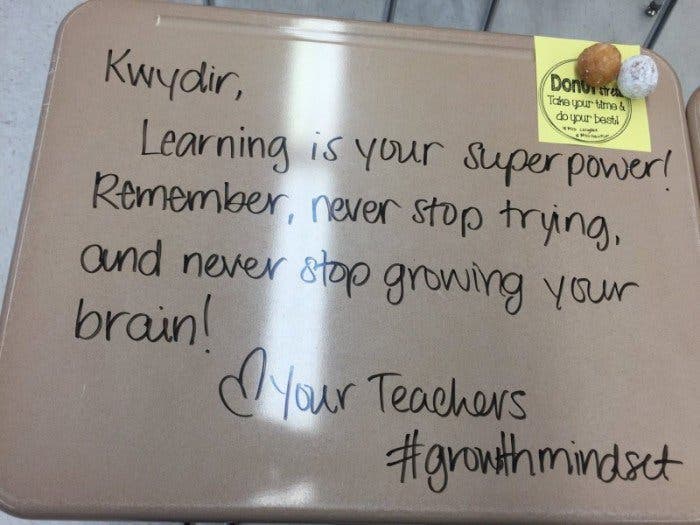 Kwydir,
Learning is your super power!
Remember, never stop trying,
and never stop growing your
brain!
♡ Your Teachers
#growthmindset
Donut
Take your time &
do your best!